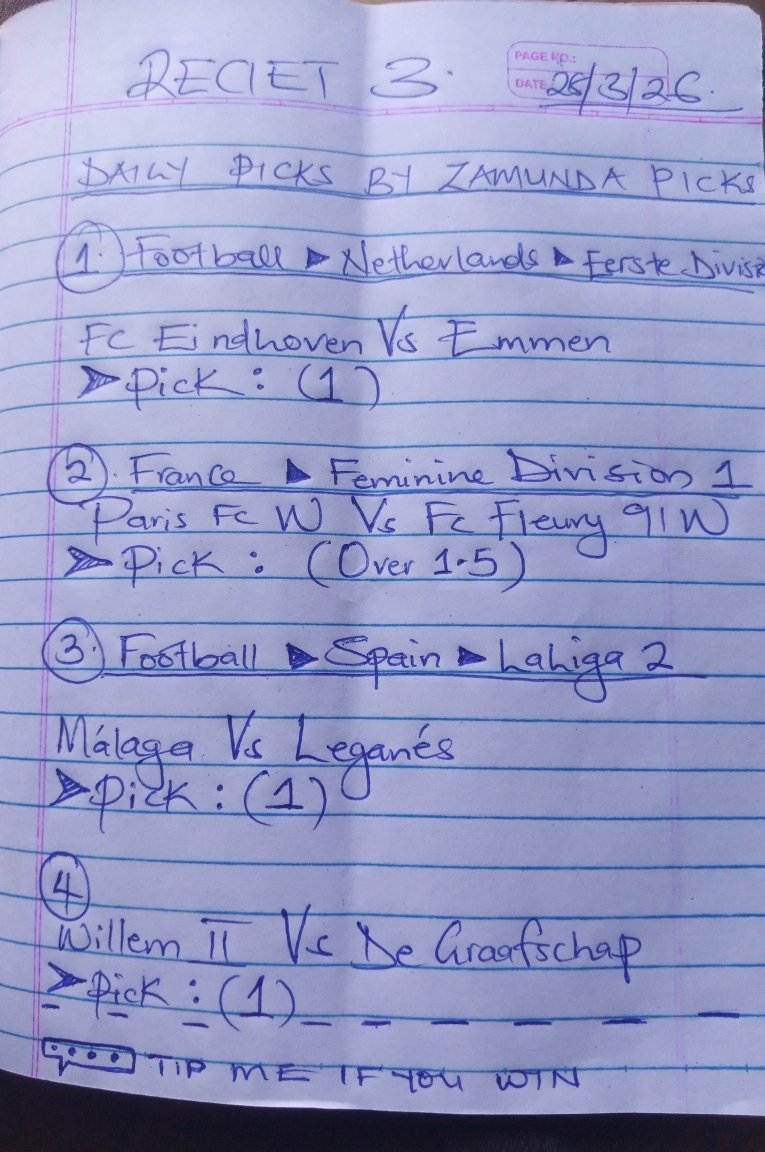 RECIET 3.
PAGE NO.:
DATE 28/3/26.
DAILY PICKS BY ZAMUNDA PICKS
1. Football ▶ Netherlands ▶ Eerste Divisi
Fc Eindhoven Vs Emmen
➤ Pick : (1)
2. France ▶ Feminine Division 1
Paris Fc W Vs Fc Fleury 91 W
➤ Pick : (Over 1.5)
3. Football ▶ Spain ▶ LaLiga 2
Málaga Vs Leganés
➤ Pick : (1)
4
Willem II Vs De Graafschap
➤ Pick : (1)
TIP ME IF YOU WIN